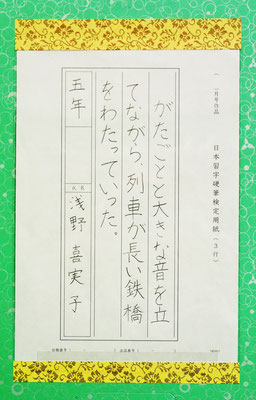 一月号作品
日本習字硬筆検定用紙(3行)
がたごとと大きな音を立
てながら、列車が長い鉄橋
をわたっていった。
五年
氏名
浅野喜実子